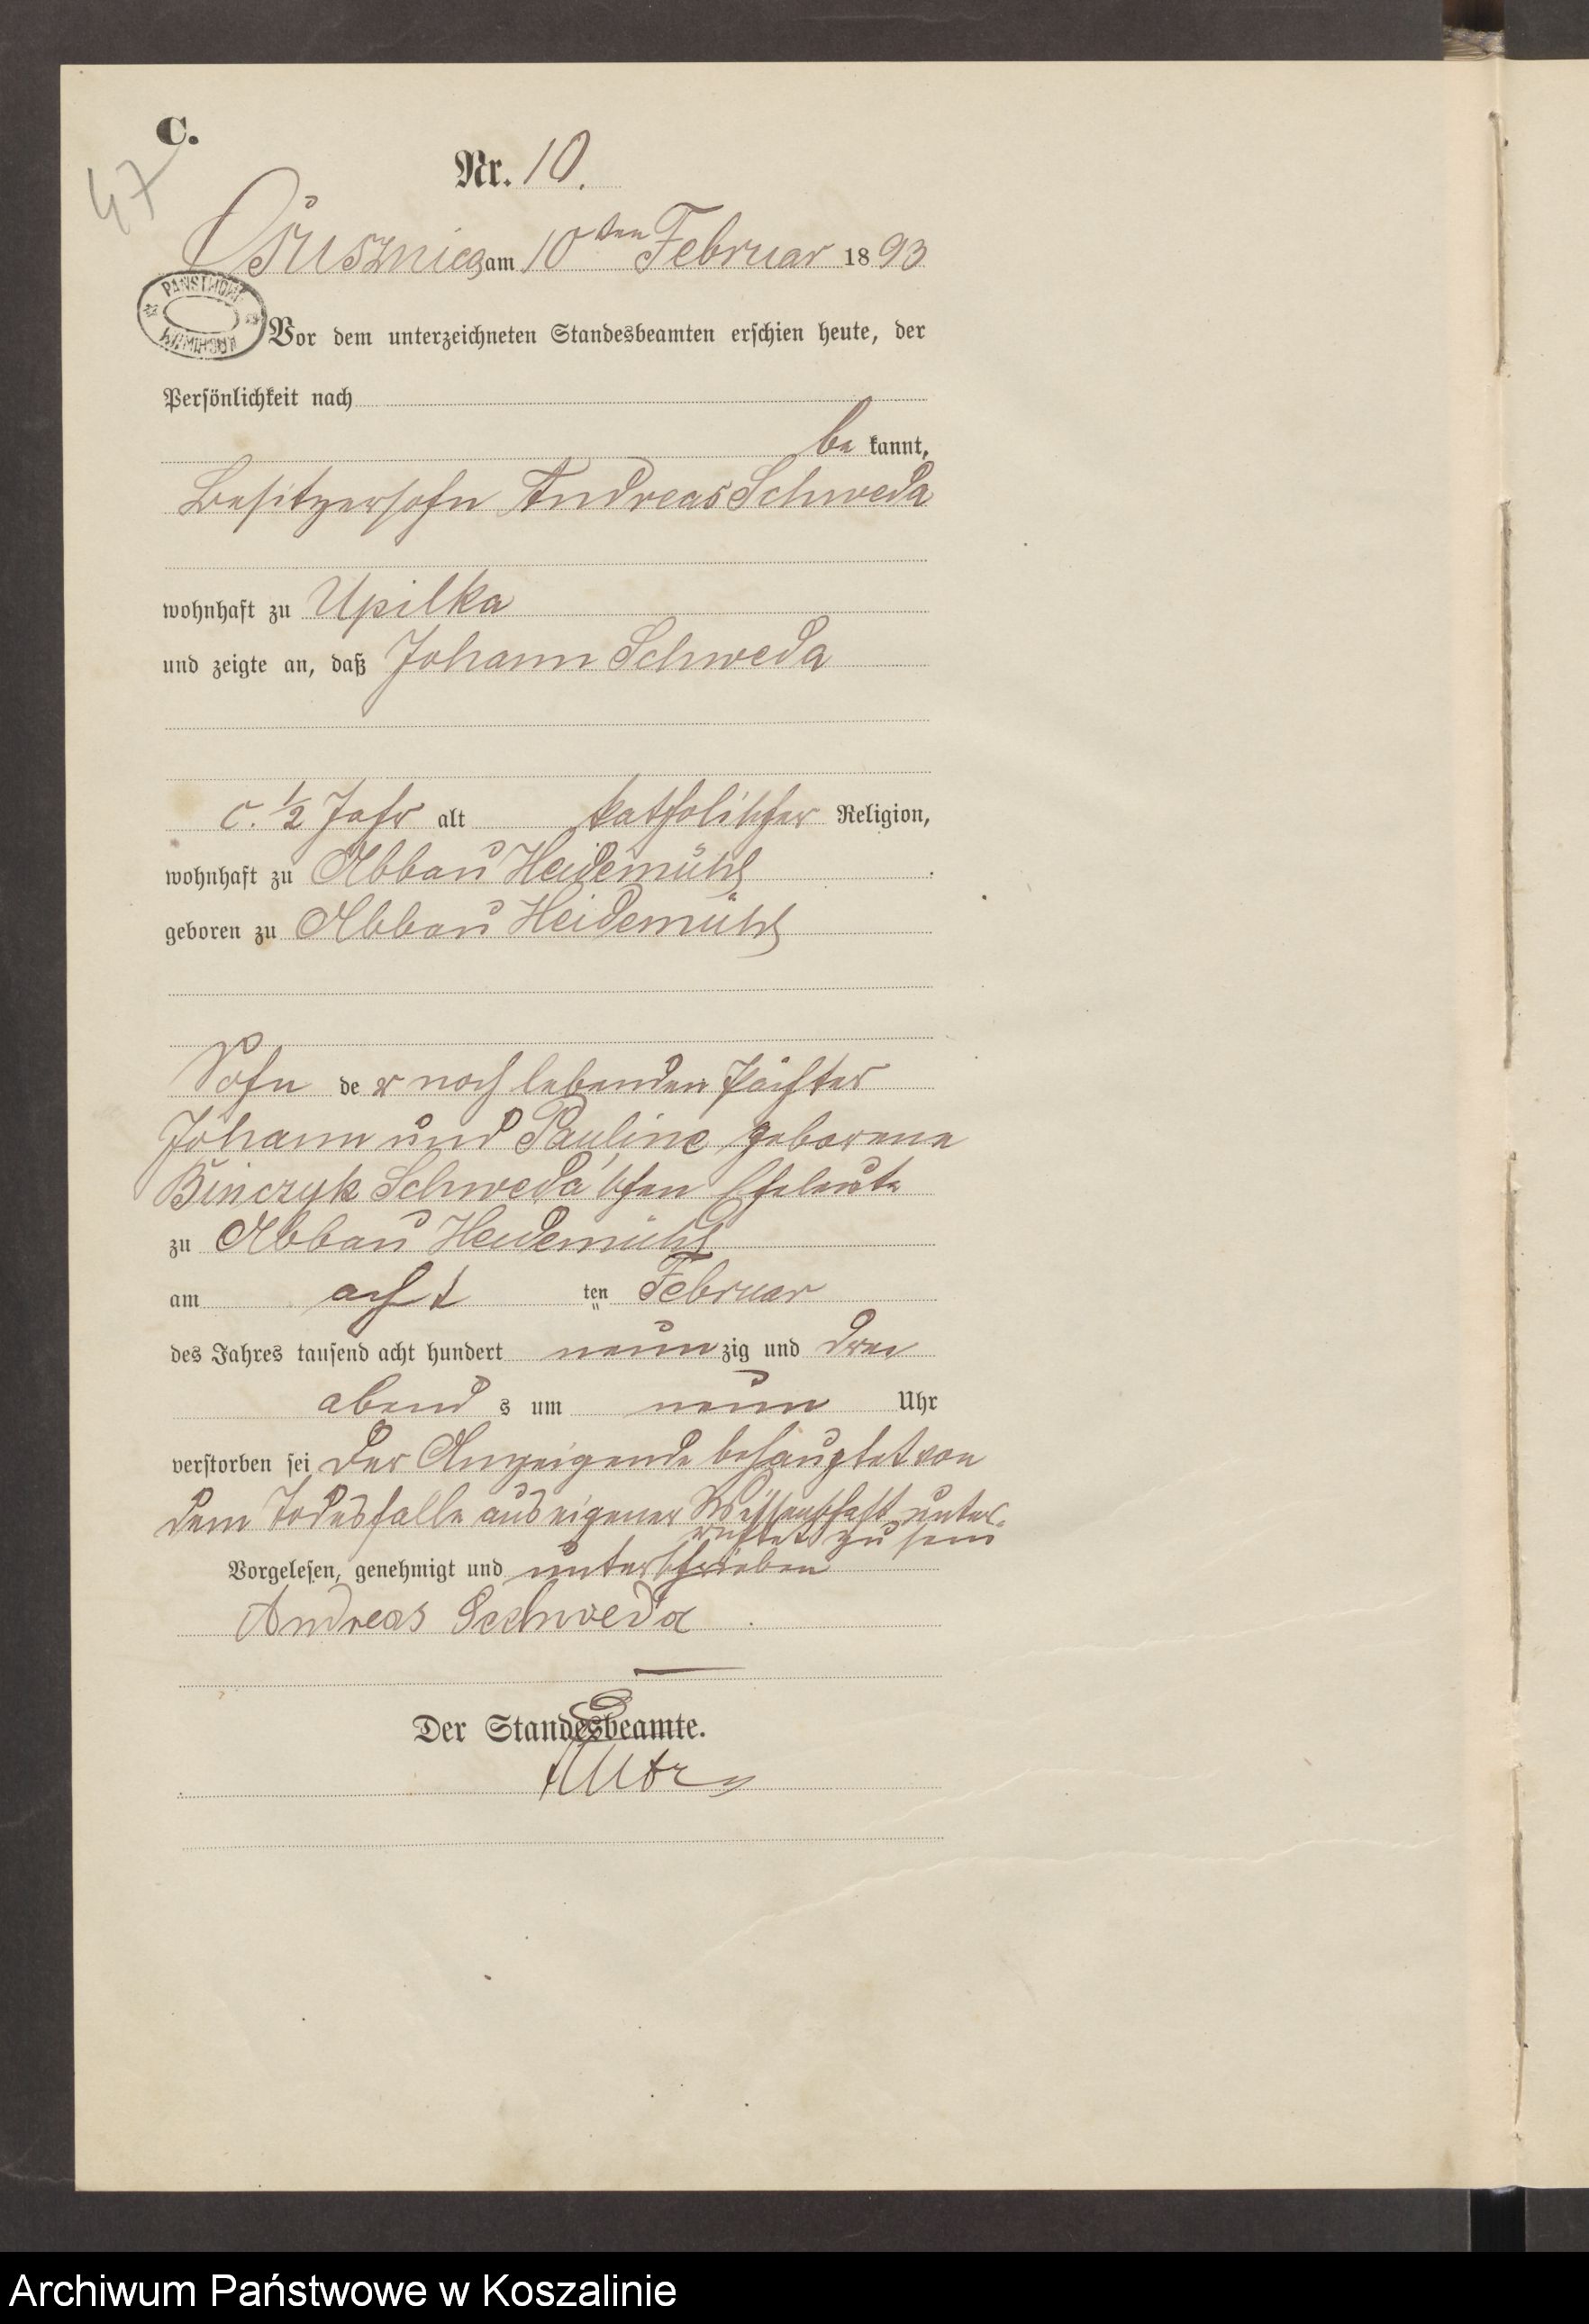 C.
47
Nr. 10.
Osusznica am 10ten Februar 1893
PAŃSTWOWE ARCHIWUM
Vor dem unterzeichneten Standesbeamten erschien heute, der
Persönlichkeit nach
be kannt,
Besitzersohn Andreas Schweda
wohnhaft zu Upilka
und zeigte an, daß Johann Schweda
c. 1/2 Jahr alt katholischer Religion,
wohnhaft zu Abbau Heidemühl
geboren zu Abbau Heidemühl
Sohn de r noch lebenden Pächter
Johann und Pauline geborene
Binczyk Schweda'schen Eheleute
zu Abbau Heidemühl
am acht ten Februar
des Jahres tausend acht hundert neun zig und drei
abend s um neun Uhr
verstorben sei Der Anzeigende behauptet von
dem Todesfalle aus eigener Wissenschaft unter-
richtet zu sein
Vorgelesen, genehmigt und unterschrieben
Andreas Schweda
Der Standesbeamte.
Archiwum Państwowe w Koszalinie